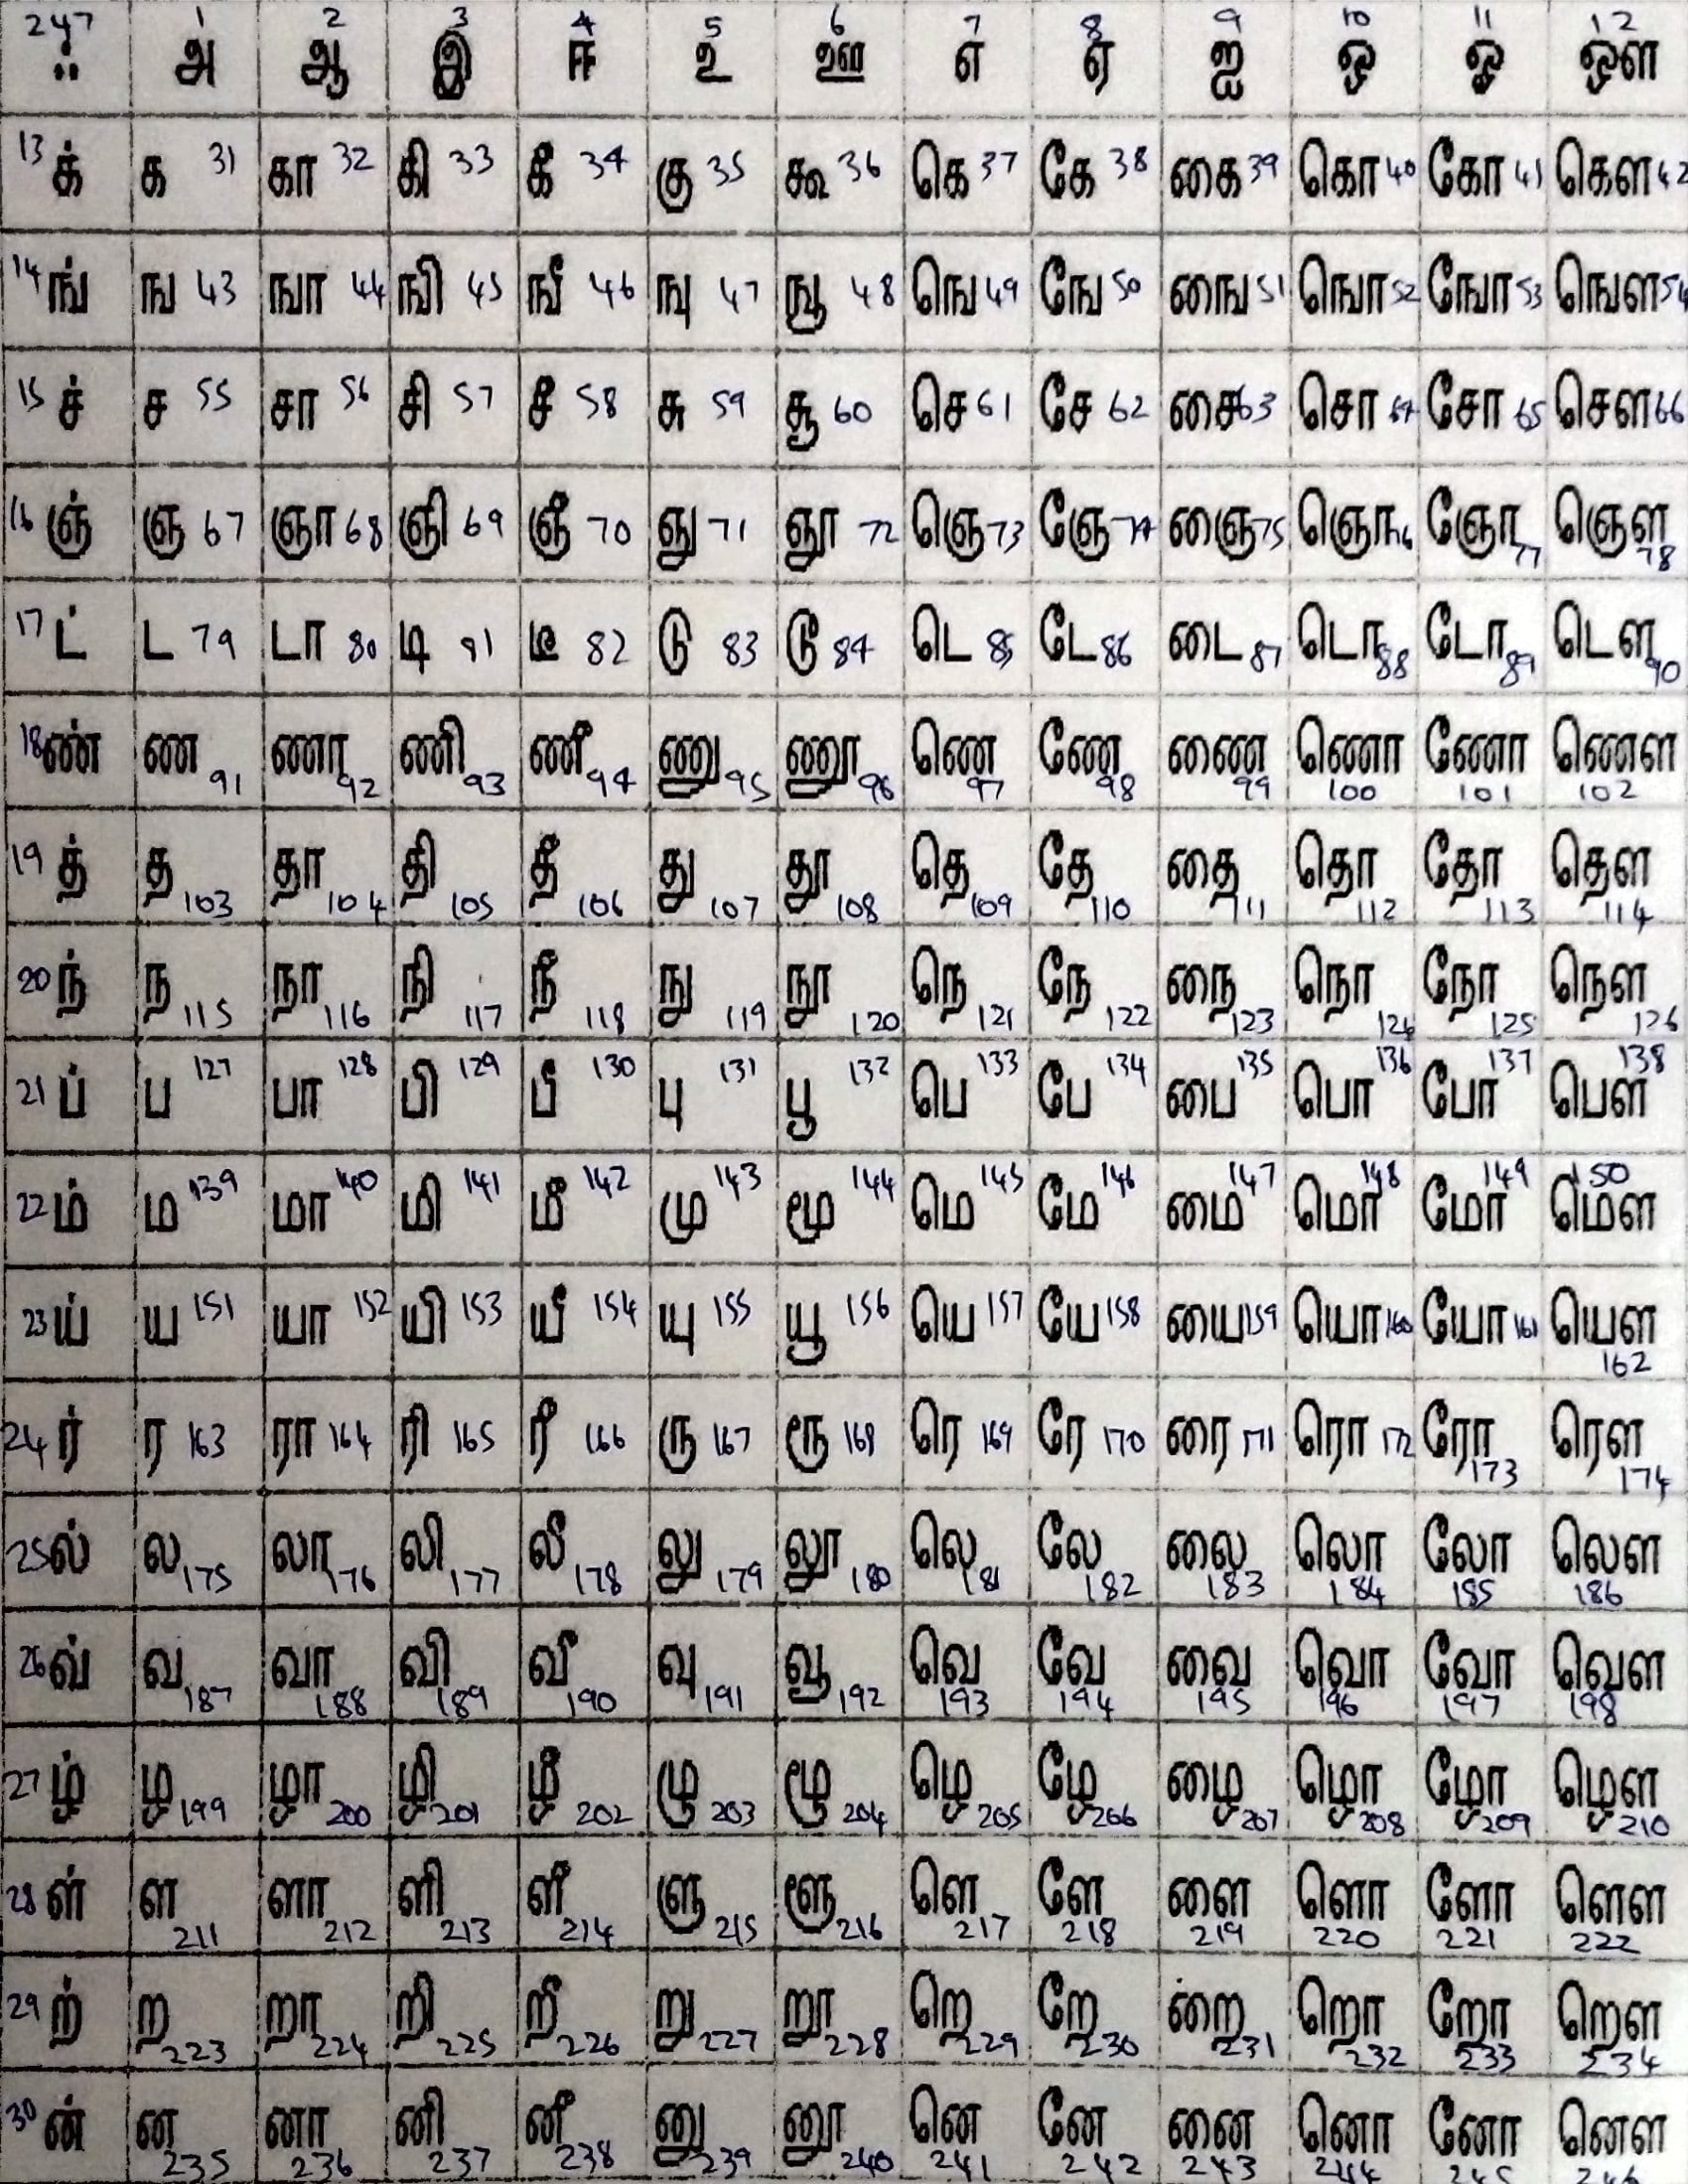 247 ஃ 1 அ 2 ஆ 3 இ 4 ஈ 5 உ 6 ஊ 7 எ 8 ஏ 9 ஐ 10 ஒ 11 ஓ 12 ஔ
13 க் க 31 கா 32 கி 33 கீ 34 கு 35 கூ 36 கெ 37 கே 38 கை 39 கொ 40 கோ 41 கௌ 42
14 ங் ங 43 ஙா 44 ஙி 45 ஙீ 46 ஙு 47 ஙூ 48 ஙெ 49 ஙே 50 ஙை 51 ஙொ 52 ஙோ 53 ஙௌ 54
15 ச் ச 55 சா 56 சி 57 சீ 58 சு 59 சூ 60 செ 61 சே 62 சை 63 சொ 64 சோ 65 சௌ 66
16 ஞ் ஞ 67 ஞா 68 ஞி 69 ஞீ 70 ஞு 71 ஞூ 72 ஞெ 73 ஞே 74 ஞை 75 ஞொ 76 ஞோ 77 ஞௌ 78
17 ட் ட 79 டா 80 டி 81 டீ 82 டு 83 டூ 84 டெ 85 டே 86 டை 87 டொ 88 டோ 89 டௌ 90
18 ண் ண 91 ணா 92 ணி 93 ணீ 94 ணு 95 ணூ 96 ணெ 97 ணே 98 ணை 99 ணொ 100 ணோ 101 ணௌ 102
19 த் த 103 தா 104 தி 105 தீ 106 து 107 தூ 108 தெ 109 தே 110 தை 111 தொ 112 தோ 113 தௌ 114
20 ந் ந 115 நா 116 நி 117 நீ 118 நு 119 நூ 120 நெ 121 நே 122 நை 123 நொ 124 நோ 125 நௌ 126
21 ப் ப 127 பா 128 பி 129 பீ 130 பு 131 பூ 132 பெ 133 பே 134 பை 135 பொ 136 போ 137 பௌ 138
22 ம் ம 139 மா 140 மி 141 மீ 142 மு 143 மூ 144 மெ 145 மே 146 மை 147 மொ 148 மோ 149 மௌ 150
23 ய் ய 151 யா 152 யி 153 யீ 154 யு 155 யூ 156 யெ 157 யே 158 யை 159 யொ 160 யோ 161 யௌ 162
24 ர் ர 163 ரா 164 ரி 165 ரீ 166 ரு 167 ரூ 168 ரெ 169 ரே 170 ரை 171 ரொ 172 ரோ 173 ரௌ 174
25 ல் ல 175 லா 176 லி 177 லீ 178 லு 179 லூ 180 லெ 181 லே 182 லை 183 லொ 184 லோ 185 லௌ 186
26 வ் வ 187 வா 188 வி 189 வீ 190 வு 191 வூ 192 வெ 193 வே 194 வை 195 வொ 196 வோ 197 வௌ 198
27 ழ் ழ 199 ழா 200 ழி 201 ழீ 202 ழு 203 ழூ 204 ழெ 205 ழே 206 ழை 207 ழொ 208 ழோ 209 ழௌ 210
28 ள் ள 211 ளா 212 ளி 213 ளீ 214 ளு 215 ளூ 216 ளெ 217 ளே 218 ளை 219 ளொ 220 ளோ 221 ளௌ 222
29 ற் ற 223 றா 224 றி 225 றீ 226 று 227 றூ 228 றெ 229 றே 230 றை 231 றொ 232 றோ 233 றௌ 234
30 ன் ன 235 னா 236 னி 237 னீ 238 னு 239 னூ 240 னெ 241 னே 242 னை 243 னொ 244 னோ 245 னௌ 246